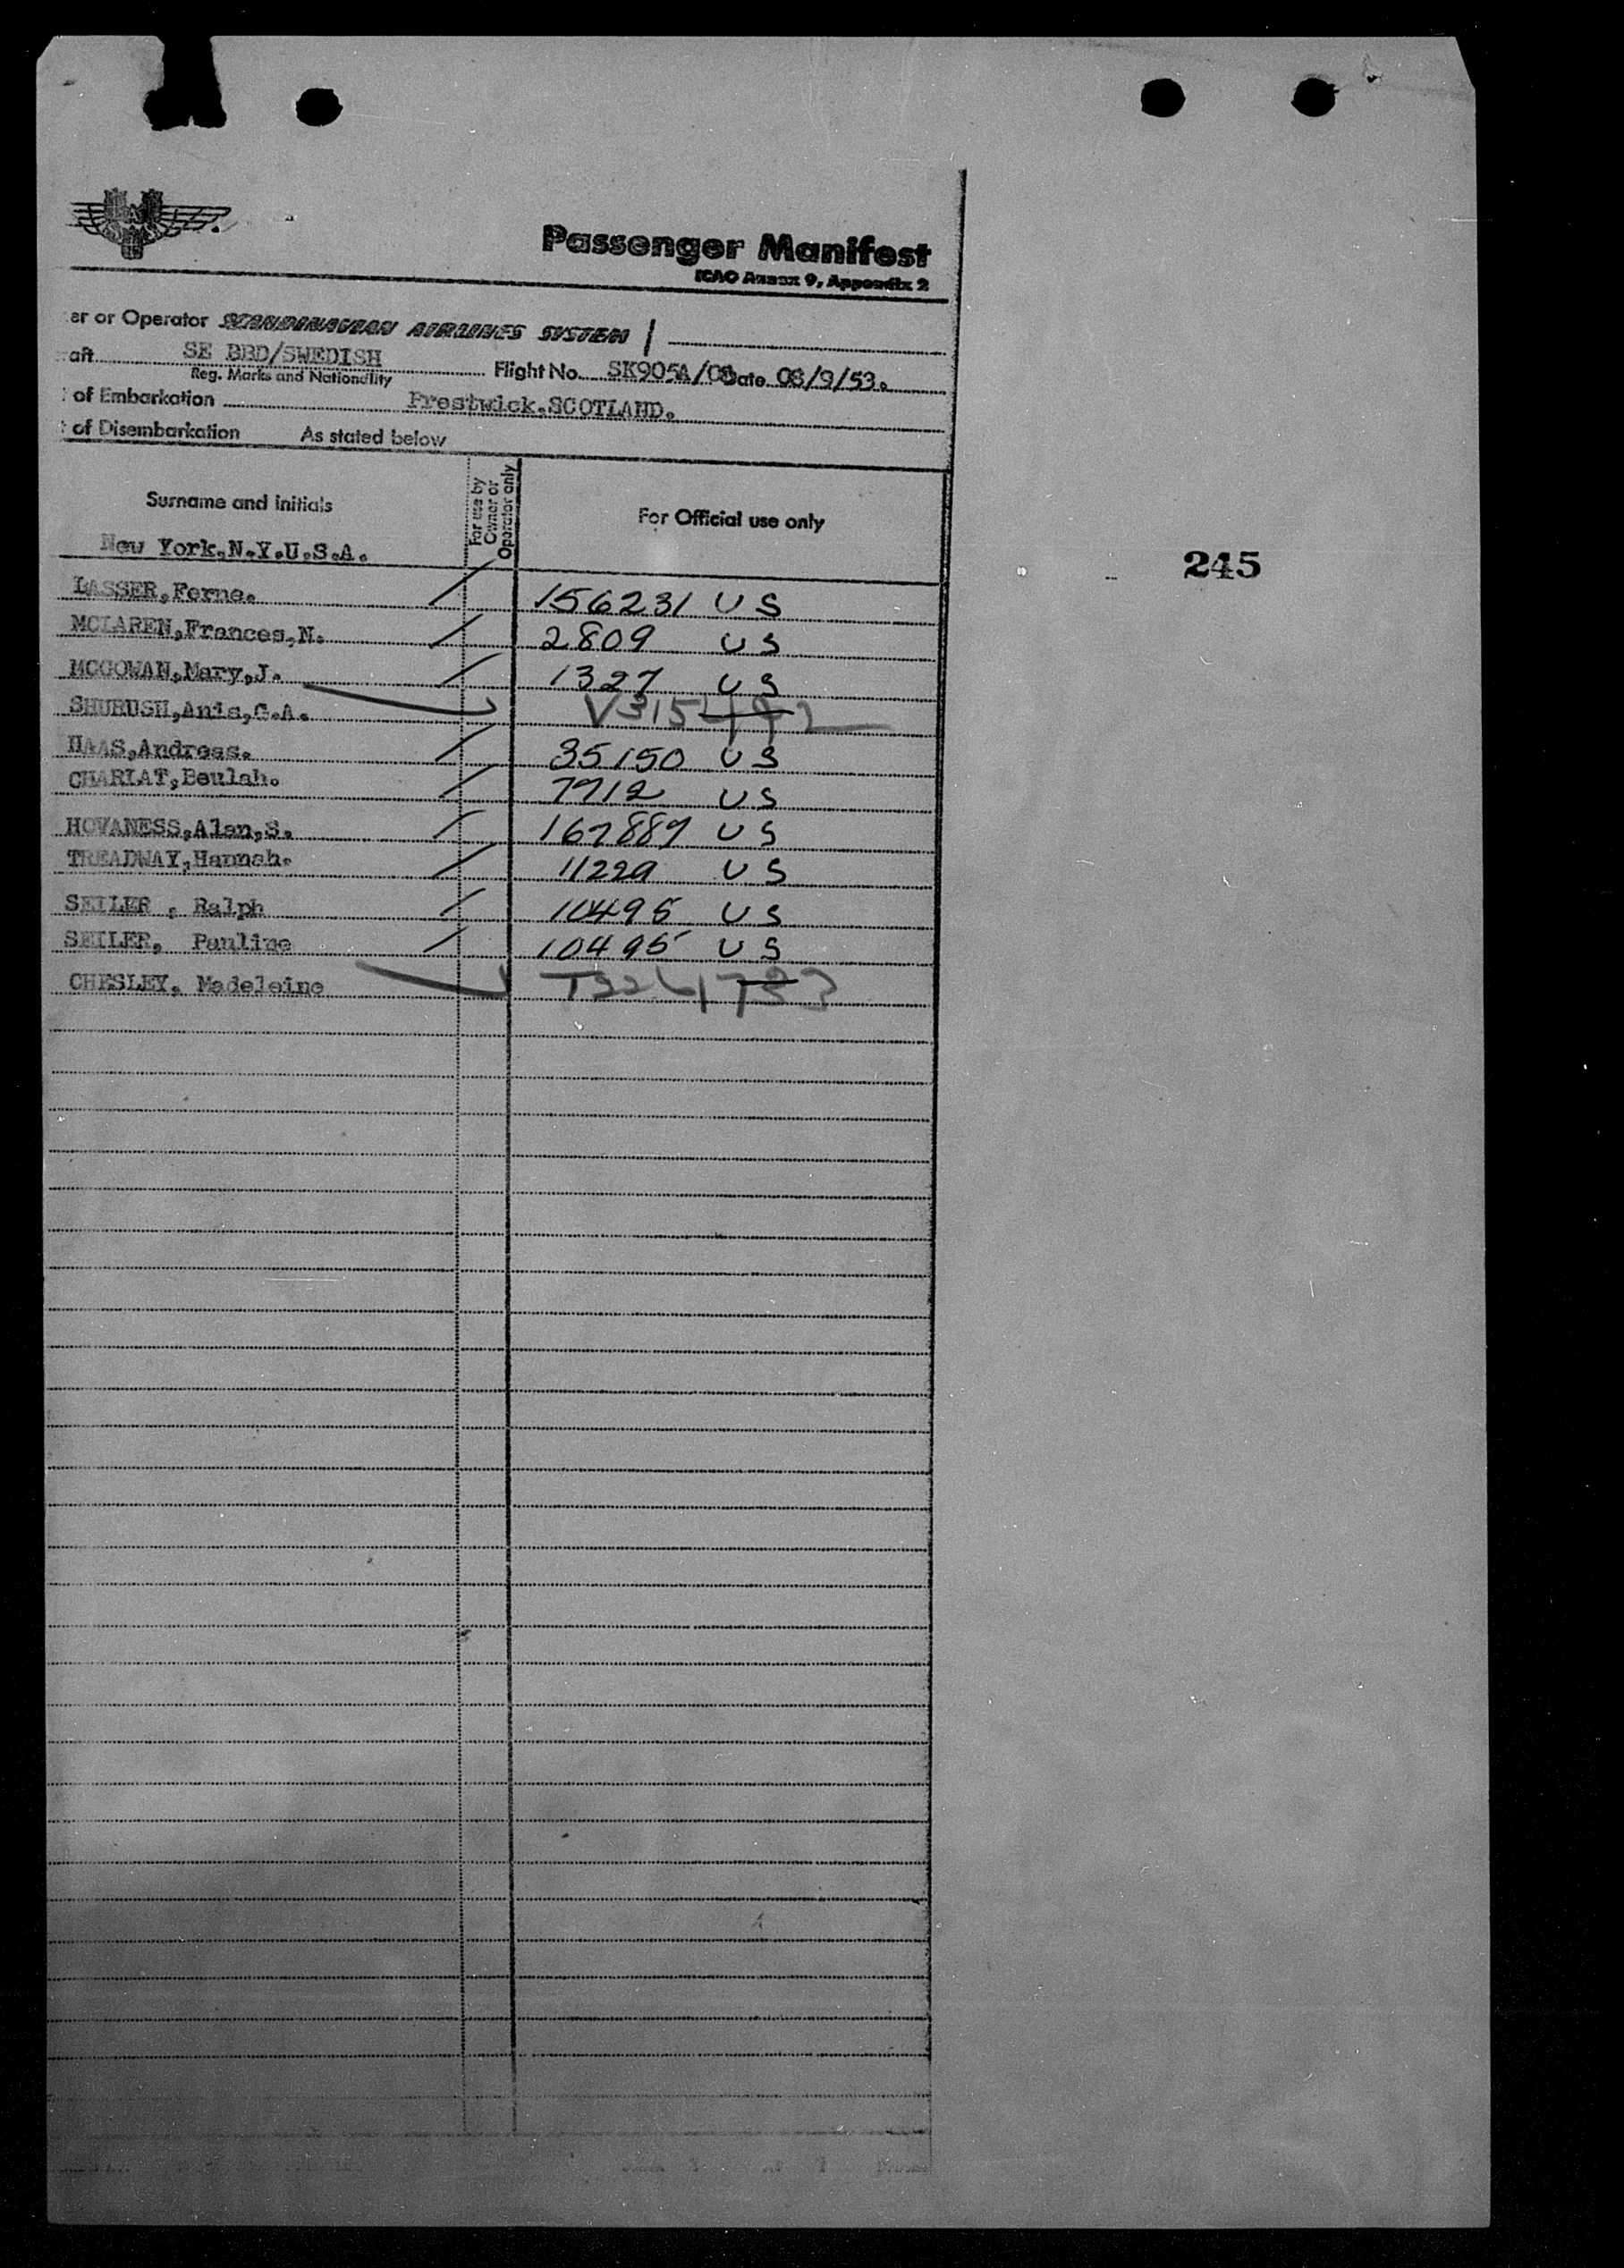 Passenger Manifest
ICAO Annex 9, Appendix 2
er or Operator SCANDINAVIAN AIRLINES SYSTEM
aft SE BBD/SWEDISH Flight No. SK905A/08 Date 08/9/53.
Reg. Marks and Nationality
of Embarkation Prestwick.SCOTLAND.
of Disembarkation As stated below
Surname and initials For use by Owner or Operator only For Official use only
New York.N.Y.U.S.A.
245
LASSER,Ferne. / 156231 US
MCLAREN,Frances,N. / 2809 US
MCGOWAN,Mary,J. / 1327 US
SHURUSH,Anis,C.A.
HAAS,Andreas. / 35150 US
CHARLAT,Beulah. / 7712 US
HOVANESS,Alan,S. / 167887 US
TREADWAY,Hannah. / 11229 US
SEILER, Ralph / 10495 US
SEILER, Pauline / 10495 US
CHESLEY, Madeleine